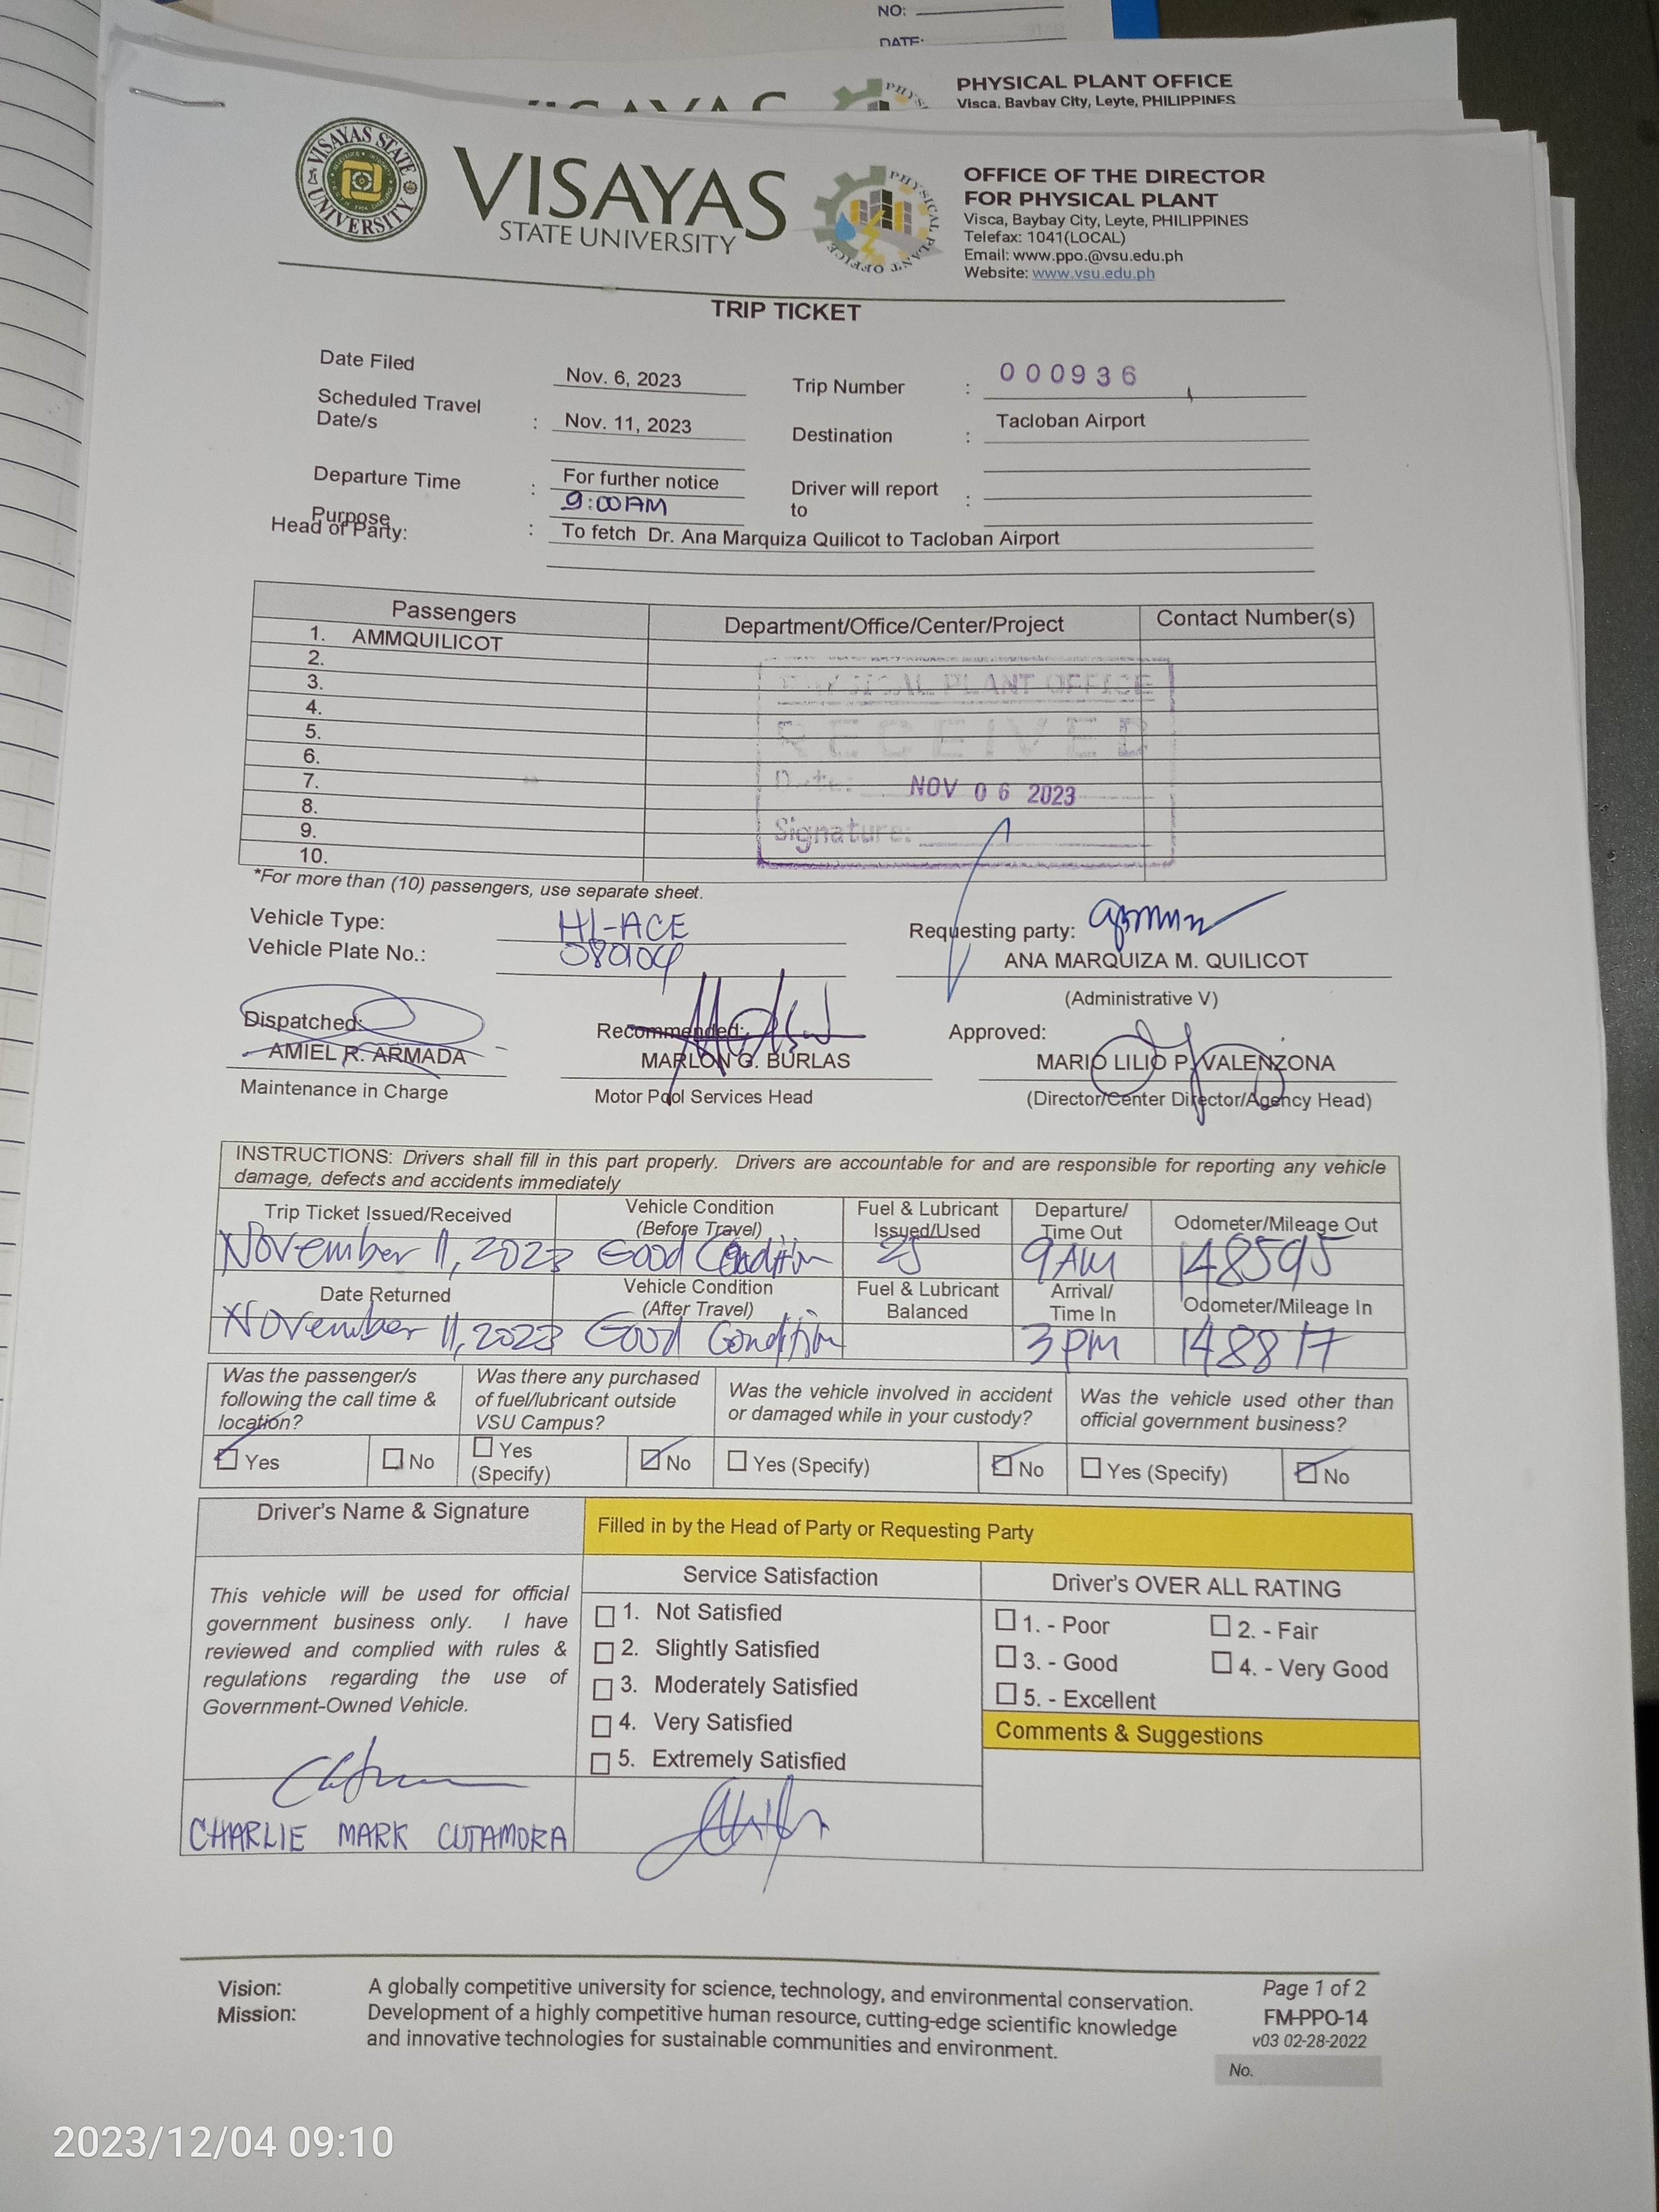 NO:
DATE:
PHYSICAL PLANT OFFICE
Visca, Baybay City, Leyte, PHILIPPINES
VISAYAS
VISAYAS STATE UNIVERSITY
VISAYAS
STATE UNIVERSITY
PHYSICAL PLANT OFFICE
OFFICE OF THE DIRECTOR
FOR PHYSICAL PLANT
Visca, Baybay City, Leyte, PHILIPPINES
Telefax: 1041(LOCAL)
Email: www.ppo.@vsu.edu.ph
Website: www.vsu.edu.ph
TRIP TICKET
Date Filed Nov. 6, 2023 Trip Number : 000936
Scheduled Travel
Date/s : Nov. 11, 2023 Destination : Tacloban Airport
Departure Time : For further notice Driver will report to :
9:00AM
Purpose
Head of Party: : To fetch Dr. Ana Marquiza Quilicot to Tacloban Airport
Passengers Department/Office/Center/Project Contact Number(s)
1. AMMQUILICOT
2.
3.
4.
5.
6.
7.
8.
9.
10.
PHYSICAL PLANT OFFICE
RECEIVED
Date: NOV 06 2023
Signature:
*For more than (10) passengers, use separate sheet.
Vehicle Type: HI-ACE
Vehicle Plate No.:
Requesting party:
ANA MARQUIZA M. QUILICOT
(Administrative V)
Dispatched: Recommended: Approved:
AMIEL R. ARMADA MARLON G. BURLAS MARIO LILIO P. VALENZONA
Maintenance in Charge Motor Pool Services Head (Director/Center Director/Agency Head)
INSTRUCTIONS: Drivers shall fill in this part properly. Drivers are accountable for and are responsible for reporting any vehicle
damage, defects and accidents immediately
Trip Ticket Issued/Received Vehicle Condition (Before Travel) Fuel & Lubricant Issued/Used Departure/ Time Out Odometer/Mileage Out
November 11, 2023 Good Condition 25 9AM 148595
Date Returned Vehicle Condition (After Travel) Fuel & Lubricant Balanced Arrival/ Time In Odometer/Mileage In
November 11, 2023 Good Condition 3PM 148817
Was the passenger/s following the call time & location?
Yes No
Was there any purchased of fuel/lubricant outside VSU Campus?
Yes (Specify) No
Was the vehicle involved in accident or damaged while in your custody?
Yes (Specify) No
Was the vehicle used other than official government business?
Yes (Specify) No
Driver's Name & Signature
This vehicle will be used for official
government business only. I have
reviewed and complied with rules &
regulations regarding the use of
Government-Owned Vehicle.
CHARLIE MARK CUTAMORA
Filled in by the Head of Party or Requesting Party
Service Satisfaction
1. Not Satisfied
2. Slightly Satisfied
3. Moderately Satisfied
4. Very Satisfied
5. Extremely Satisfied
Driver's OVER ALL RATING
1. - Poor 2. - Fair
3. - Good 4. - Very Good
5. - Excellent
Comments & Suggestions
Vision: A globally competitive university for science, technology, and environmental conservation.
Mission: Development of a highly competitive human resource, cutting-edge scientific knowledge
and innovative technologies for sustainable communities and environment.
Page 1 of 2
FM-PPO-14
v03 02-28-2022
No.
2023/12/04 09:10